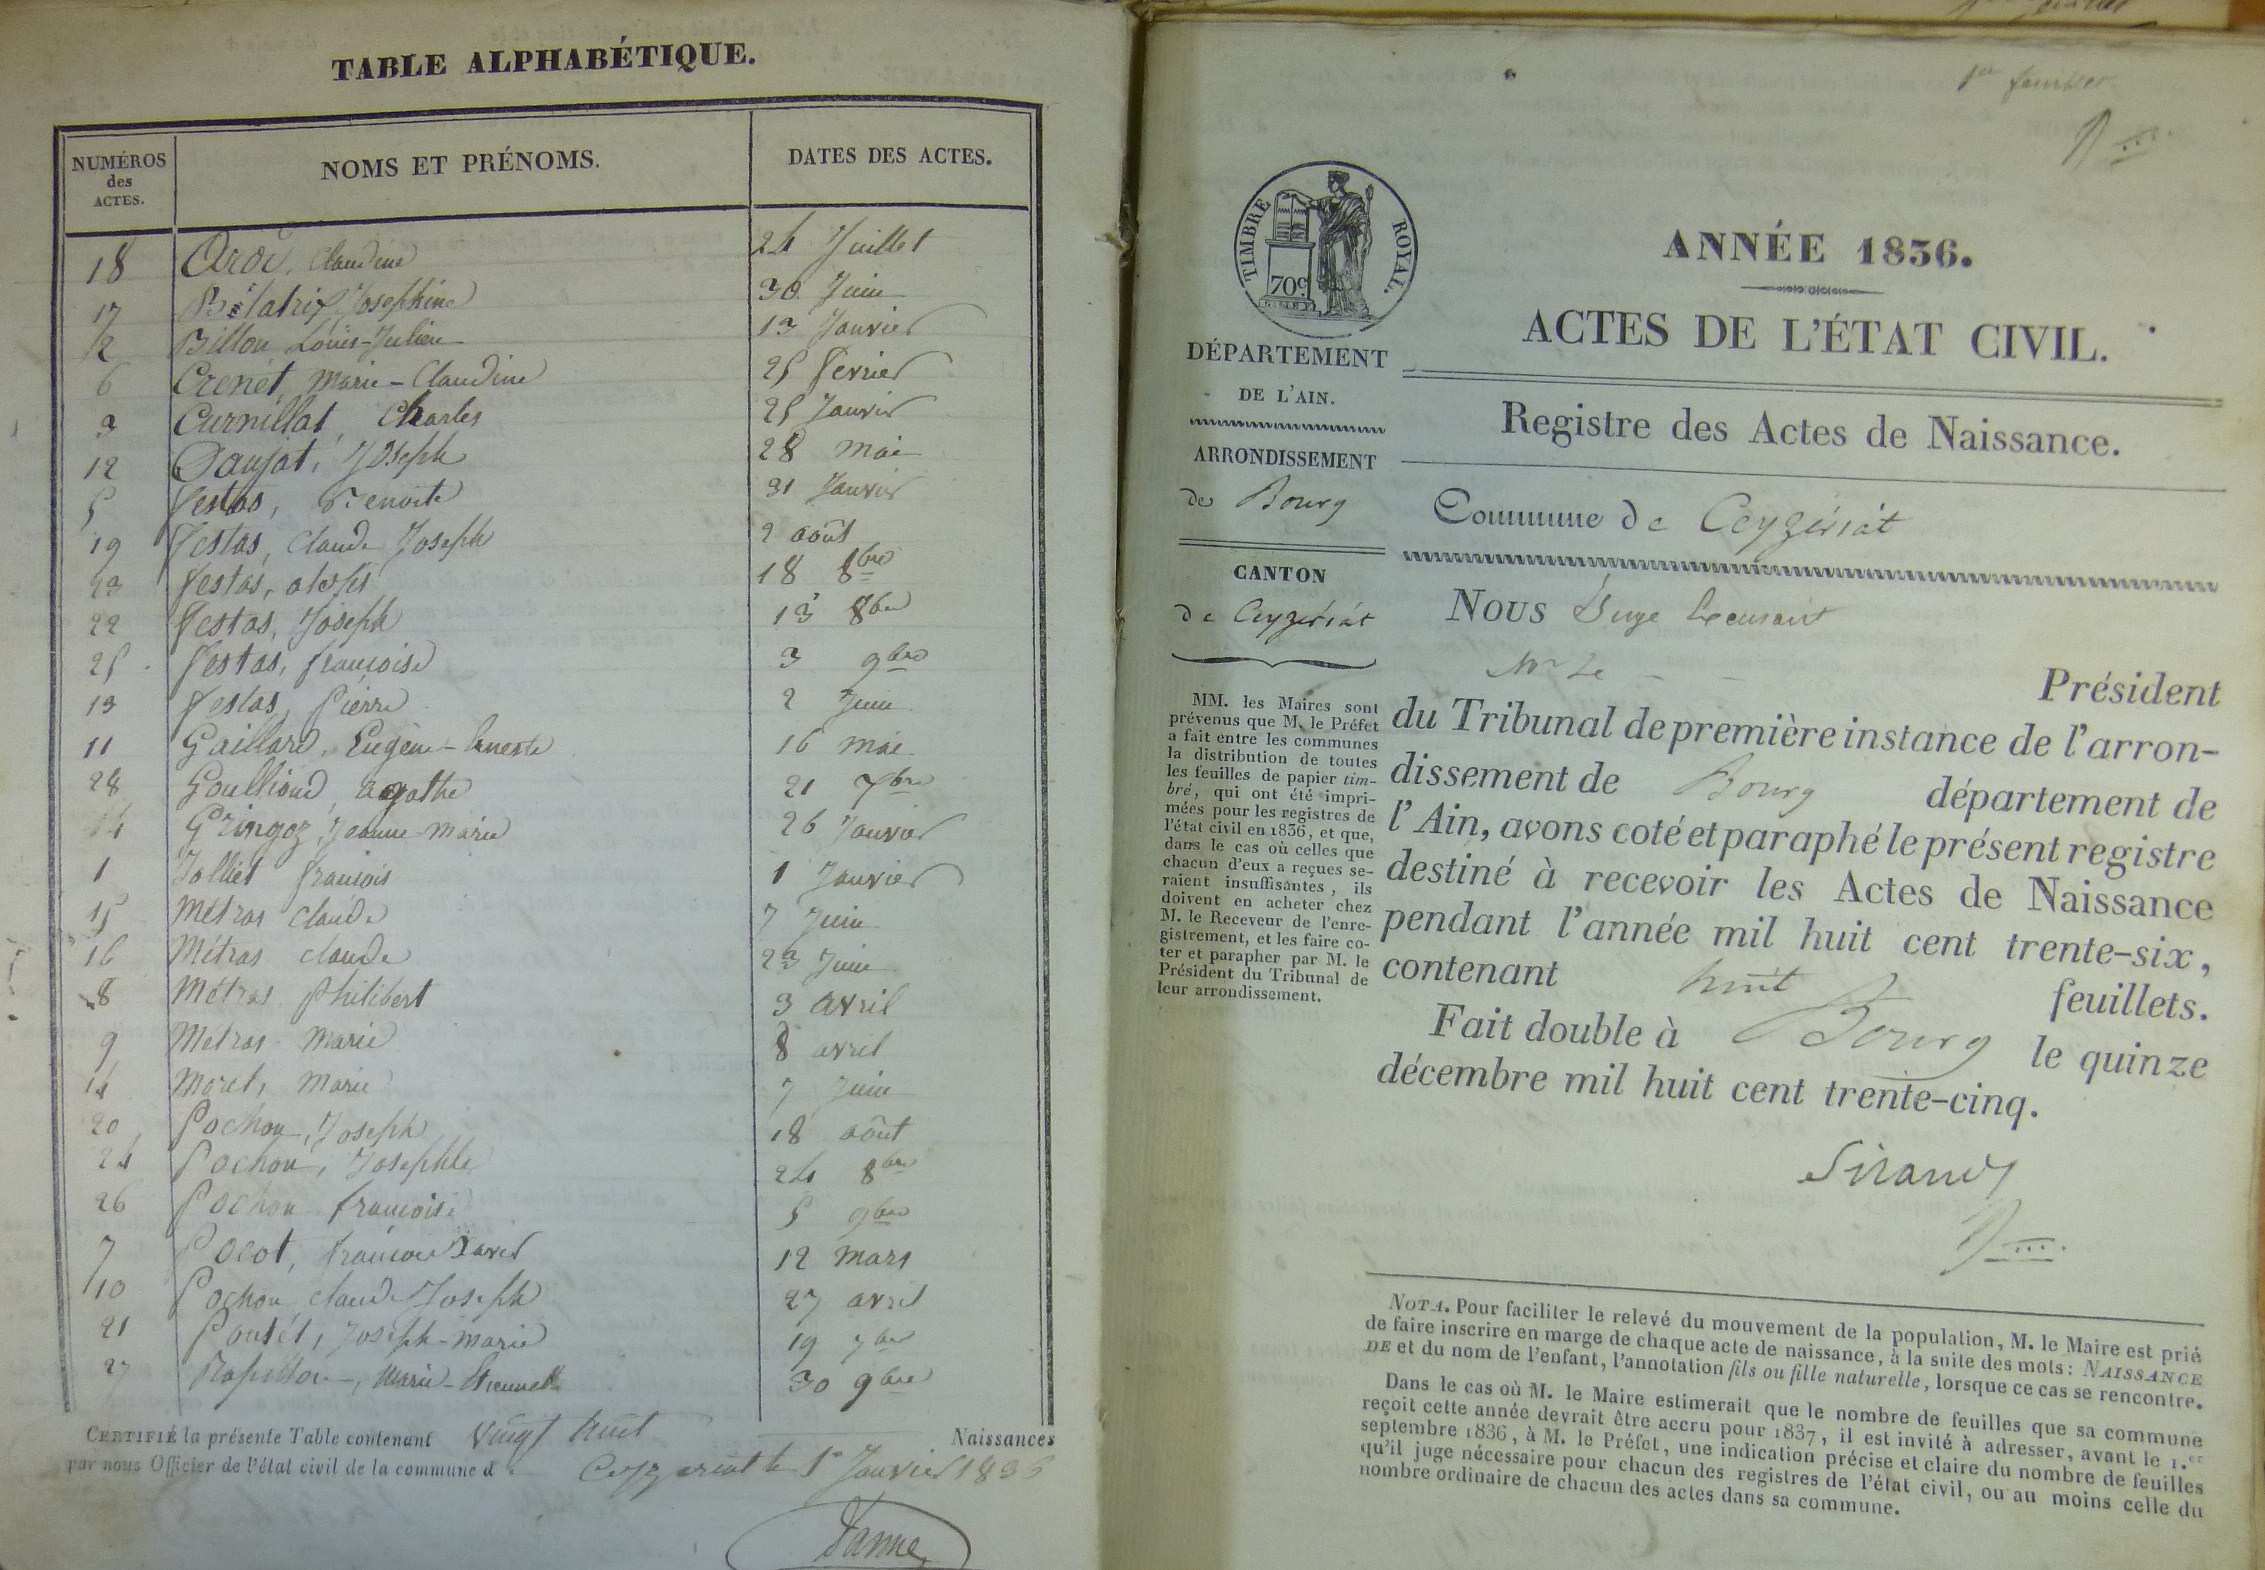 TABLE ALPHABÉTIQUE.
NUMÉROS des ACTES. NOMS ET PRÉNOMS. DATES DES ACTES.
18 Claudine 24 Juillet
17 Bélatrix Josephine 30 Juin
2 Billon Louis-Julien 13 Janvier
6 Crenet, Marie-Claudine 25 fevrier
3 Curnillat, Charles 25 Janvier
12 Daujat, Joseph 28 mai
5 festas, Benoite 31 Janvier
19 festas, Claude Joseph 2 août
23 festas, 18 8bre
22 festas, Joseph 13 8bre
25 festas, françoise 3 9bre
13 festas, Pierre 2 Juin
11 Gaillard, Eugène-Ernest 16 mai
28 agathe 21 7bre
Gringoz, Jeanne-Marie 26 Janvier
1 Jolliet françois 1 Janvier
15 Métras Claude 7 Juin
16 Métras Claude 23 Juin
8 Métras Philibert 3 avril
9 Métras Marie 8 avril
14 Moret, Marie 7 Juin
20 Pochon, Joseph 18 août
24 Pochon, Josephte 24 8bre
26 Pochon françoise 5 9bre
7 Pocot, françois Xavier 12 mars
10 Pochon Claude Joseph 27 avril
21 Joseph-Marie 19 7bre
27 Marie- 30 9bre
CERTIFIÉ la présente Table contenant vingt huit Naissances
par nous Officier de l'état civil de la commune de Ceyzeriat le 1er Janvier 183
1er feuillet
TIMBRE ROYAL.
70c
ANNÉE 1836.
ACTES DE L'ÉTAT CIVIL.
DÉPARTEMENT
DE L'AIN.
ARRONDISSEMENT
de Bourg
CANTON
de Ceyzériat
MM. les Maires sont
prévenus que M. le Préfet
a fait entre les communes
la distribution de toutes
les feuilles de papier tim-
bré, qui ont été impri-
mées pour les registres de
l'état civil en 1836, et que,
dans le cas où celles que
chacun d'eux a reçues se-
raient insuffisantes, ils
doivent en acheter chez
M. le Receveur de l'enre-
gistrement, et les faire co-
ter et parapher par M. le
Président du Tribunal de
leur arrondissement.
Registre des Actes de Naissance.
Commune de Ceyzériat
NOUS Juge
Mr Le
Président
du Tribunal de première instance de l'arron-
dissement de Bourg département de
l'Ain, avons coté et paraphé le présent registre
destiné à recevoir les Actes de Naissance
pendant l'année mil huit cent trente-six,
contenant huit feuillets.
Fait double à Bourg le quinze
décembre mil huit cent trente-cinq.
NOTA. Pour faciliter le relevé du mouvement de la population, M. le Maire est prié
de faire inscrire en marge de chaque acte de naissance, à la suite des mots: NAISSANCE
DE et du nom de l'enfant, l'annotation fils ou fille naturelle, lorsque ce cas se rencontre.
Dans le cas où M. le Maire estimerait que le nombre de feuilles que sa commune
reçoit cette année devrait être accru pour 1837, il est invité à adresser, avant le 1.er
septembre 1836, à M. le Préfet, une indication précise et claire du nombre de feuilles
qu'il juge nécessaire pour chacun des registres de l'état civil, ou au moins celle du
nombre ordinaire de chacun des actes dans sa commune.